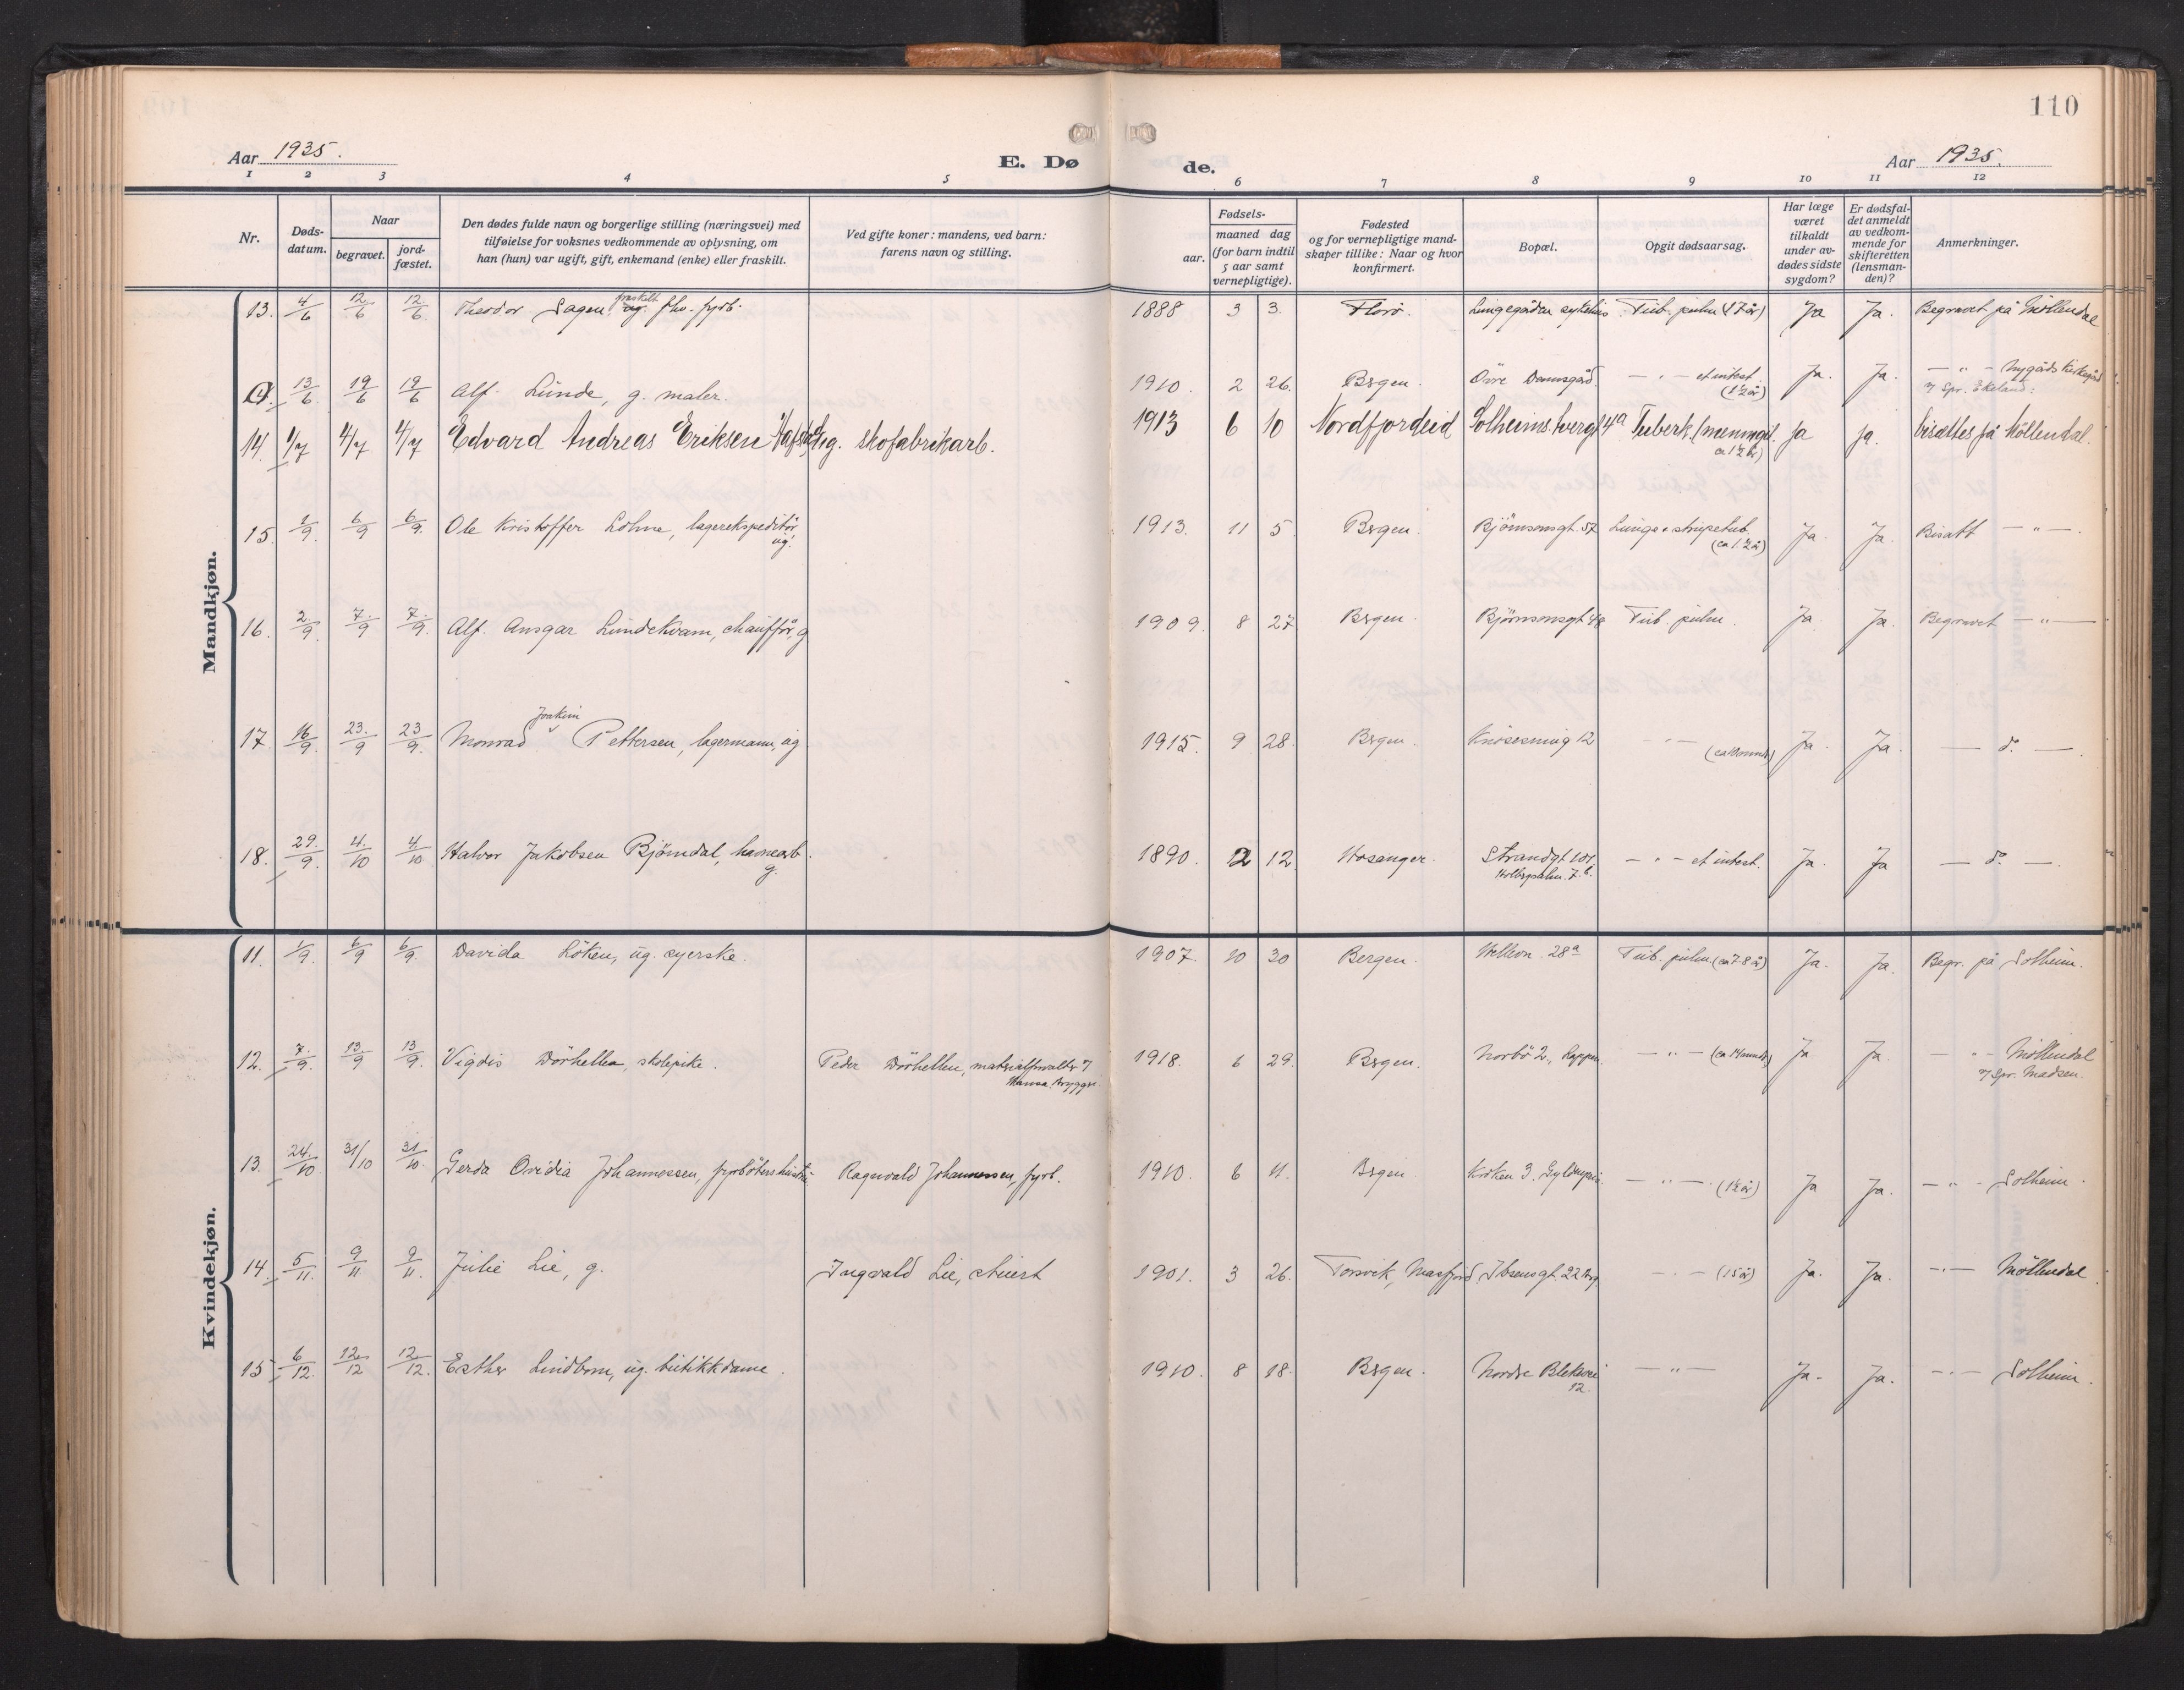 110
Aar 1935.
E. Dø
de.
Aar 1935.
1 2 3 4 5 6 7 8 9 10 11 12
Nr.
Døds-
datum.
Naar
begravet.
jord-
fæstet.
Den dødes fulde navn og borgerlige stilling (næringsvei) med
tilføielse for voksnes vedkommende av oplysning, om
han (hun) var ugift, gift, enkemand (enke) eller fraskilt.
Ved gifte koner: mandens, ved barn:
farens navn og stilling.
Fødsels-
aar.
maaned dag
(for barn indtil
5 aar samt
vernepligtige).
Fødested
og for vernepligtige mand-
skaper tillike: Naar og hvor
konfirmert.
Bopæl.
Opgit dødsaarsag.
Har læge
været
tilkaldt
under av-
dødes sidste
sygdom?
Er dødsfal-
det anmeldt
av vedkom-
mende for
skifteretten
(lensman-
den)?
Anmerkninger.
Mandkjøn.
fraskilt
13. 4/6 12/6 12/6 Theodor Sagen ug. fhv. fyrb. 1888 3 3. Florö. Lungegården sykehus Tub. pulm (17 år) Ja Ja. Begravet på Möllendal
13/6 19/6 19/6 Alf Lunde, g. maler. 1910. 2 26. Bergen. Övre Damsgård. — " — et intest. Ja. Ja. — " - Nygårds kirkegård
(1½ år) v/ Spr. Ekeland.
14. 1/7 4/7 4/7 Edvard Andreas Eriksen ug. skofabrikarb. 1913 6 10 Nordfjordeid Solheims 4a Tuberk. Ja Ja. bisættes på Möllendal.
15. 1/9 6/9 6/9. Ole Kristoffer Lohne, lagerekspeditör, 1913. 11 5. Bergen. Björnsonsgt. 57 Lunge & strupetub. Ja. Ja. Bisatt — " —
ug. (ca 1½ år)
16. 2/9. 7/9 7/9. Alf Ansgar Lundekvam, chaufför, g 1909. 8 27 Bergen. Björnsonsgt 48 Tub. pulm. Ja. Ja. Begravet — " —
Joakim
17. 16/9. 23/9 23/9. Monrad Pettersen, lagermann, ug 1915. 9. 28. Bergen. Knösesmug 12 — " — Ja. Ja. — do —
18. 29/9. 4/10 4/10 Halvor Jakobsen Björndal, havnearb. 1890. 12 12. Hosanger. Strandgt 101. — " — et intest. Ja. Ja — do —
g.
Kvindekjøn.
11. 1/9. 6/9 6/9. Davida Löken, ug. syerske. 1907. 10 30 Bergen. Hellevn. 28a Tub. pulm. (ca 7-8 år) Ja. Ja. Begr. på Solheim.
12. 7/9. 13/9 13/9. Vigdis Dörhellen, skolepike. Peder Dörhellen, materialforvalter v/ 1918. 6 29. Bergen. Norbö 2, — " — (ca 14 mndr) Ja Ja. — " - Möllendal
Hansa Bryggeri. v/ Spr. Madsen.
13. 24/10. 31/10 31/10. Gerda Ovidia Johannessen, fyrbötershustru Ragnvald Johannessen, fyrb. 1910. 6 11. Bergen. Kroken 3. — " — (1½ år) Ja Ja. — " - Solheim.
14. 5/11. 9/11 9/11. Julie Lie, g. Ingvald Lie, stuert 1901. 3 26. Masfjord, Ibsensgt. 22 — " — (15 år) Ja. Ja. — " — Möllendal.
15. 6/12. 12/12 12/12. Esther Lindbom, ug. butikkdame. 1910. 8 18. Bergen. Nordre Blekevei — " — Ja. Ja. — " — Solheim.
12.